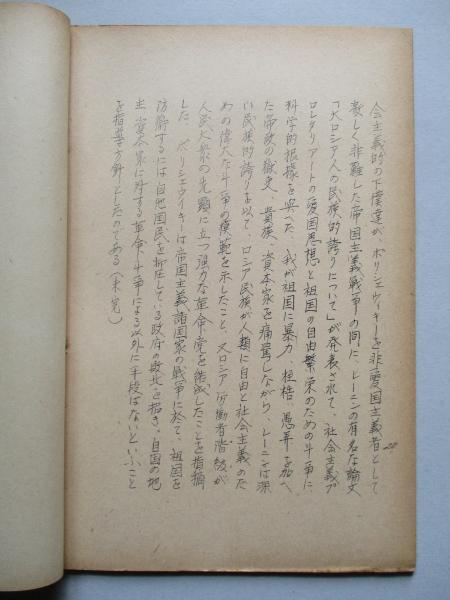 会主義的の下僕達が、ボリシェヴィキーを非愛国主義者として
激しく非難した帝国主義戦争の間に、レーニンの有名な論文
「大ロシア人の民族的誇りについて」が発表されて、社会主義プ
ロレタリアートの愛国思想と祖国の自由繁栄のための斗争に、
科学的根據を与へた、我が祖国に暴力、桎梏、愚弄を加へ
た帝政の徴吏、貴族、資本家を痛罵しながら、レーニンは深
い民族的誇りを以て、ロシア民族が人類に自由と社会主義のた
めの偉大な斗争の模範を示したこと、又ロシア労働者階級が
人民大衆の先頭に立つ強力な革命党を結成したことを指摘
した、ボリシェヴィキーは帝国主義諸国家の戦争に於て、祖国を
防衛するには自他国民を抑圧している政府の敗北を招き、自国の地
主、資本家に対する革命斗争による以外に手段はないといふこと
を指導方針としたのである（未完）